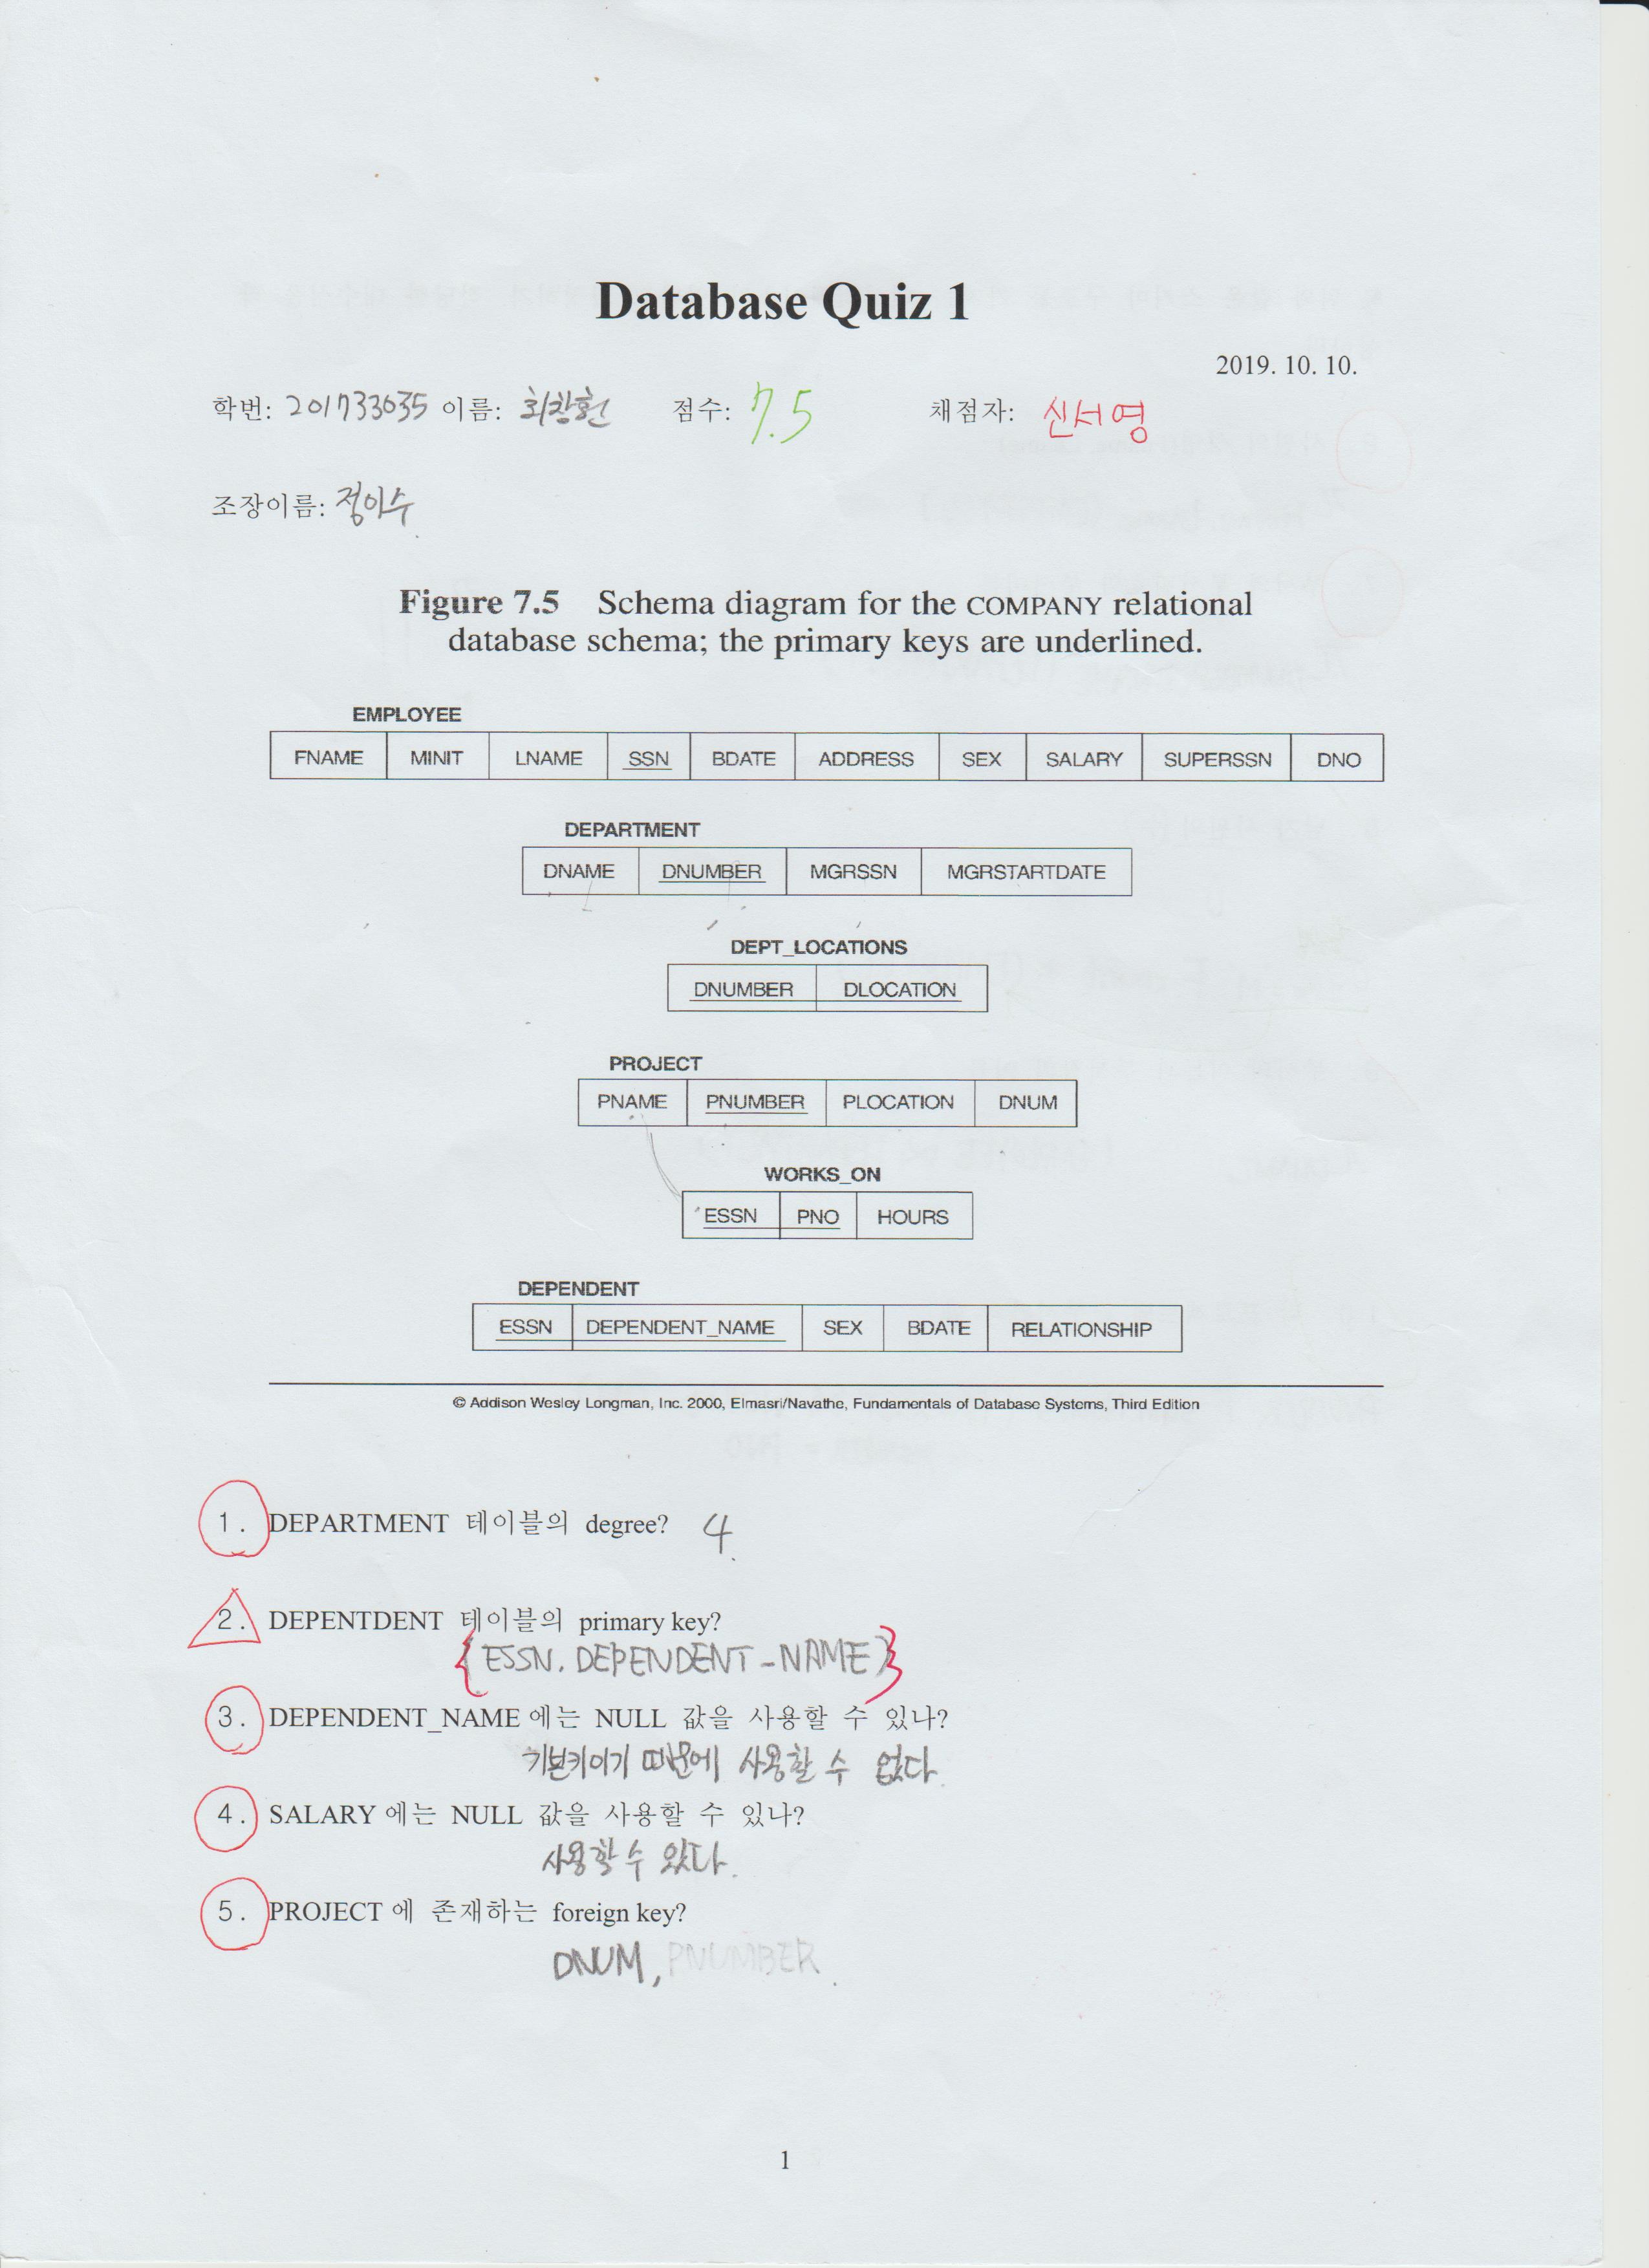 Database Quiz 1
2019. 10. 10.
학번: 201733035 이름: 최창헌 점수: 7.5 채점자: 신서영
조장이름: 정이수
Figure 7.5 Schema diagram for the COMPANY relational
database schema; the primary keys are underlined.
EMPLOYEE
FNAME MINIT LNAME SSN BDATE ADDRESS SEX SALARY SUPERSSN DNO
DEPARTMENT
DNAME DNUMBER MGRSSN MGRSTARTDATE
DEPT_LOCATIONS
DNUMBER DLOCATION
PROJECT
PNAME PNUMBER PLOCATION DNUM
WORKS_ON
ESSN PNO HOURS
DEPENDENT
ESSN DEPENDENT_NAME SEX BDATE RELATIONSHIP
© Addison Wesley Longman, Inc. 2000, Elmasri/Navathe, Fundamentals of Database Systems, Third Edition
1. DEPARTMENT 테이블의 degree? 4.
2. DEPENTDENT 테이블의 primary key?
{ESSN, DEPENDENT-NAME}
3. DEPENDENT_NAME 에는 NULL 값을 사용할 수 있나?
기본키이기 때문에 사용할 수 없다.
4. SALARY 에는 NULL 값을 사용할 수 있나?
사용할 수 있다.
5. PROJECT 에 존재하는 foreign key?
DNUM, PNUMBER.
1